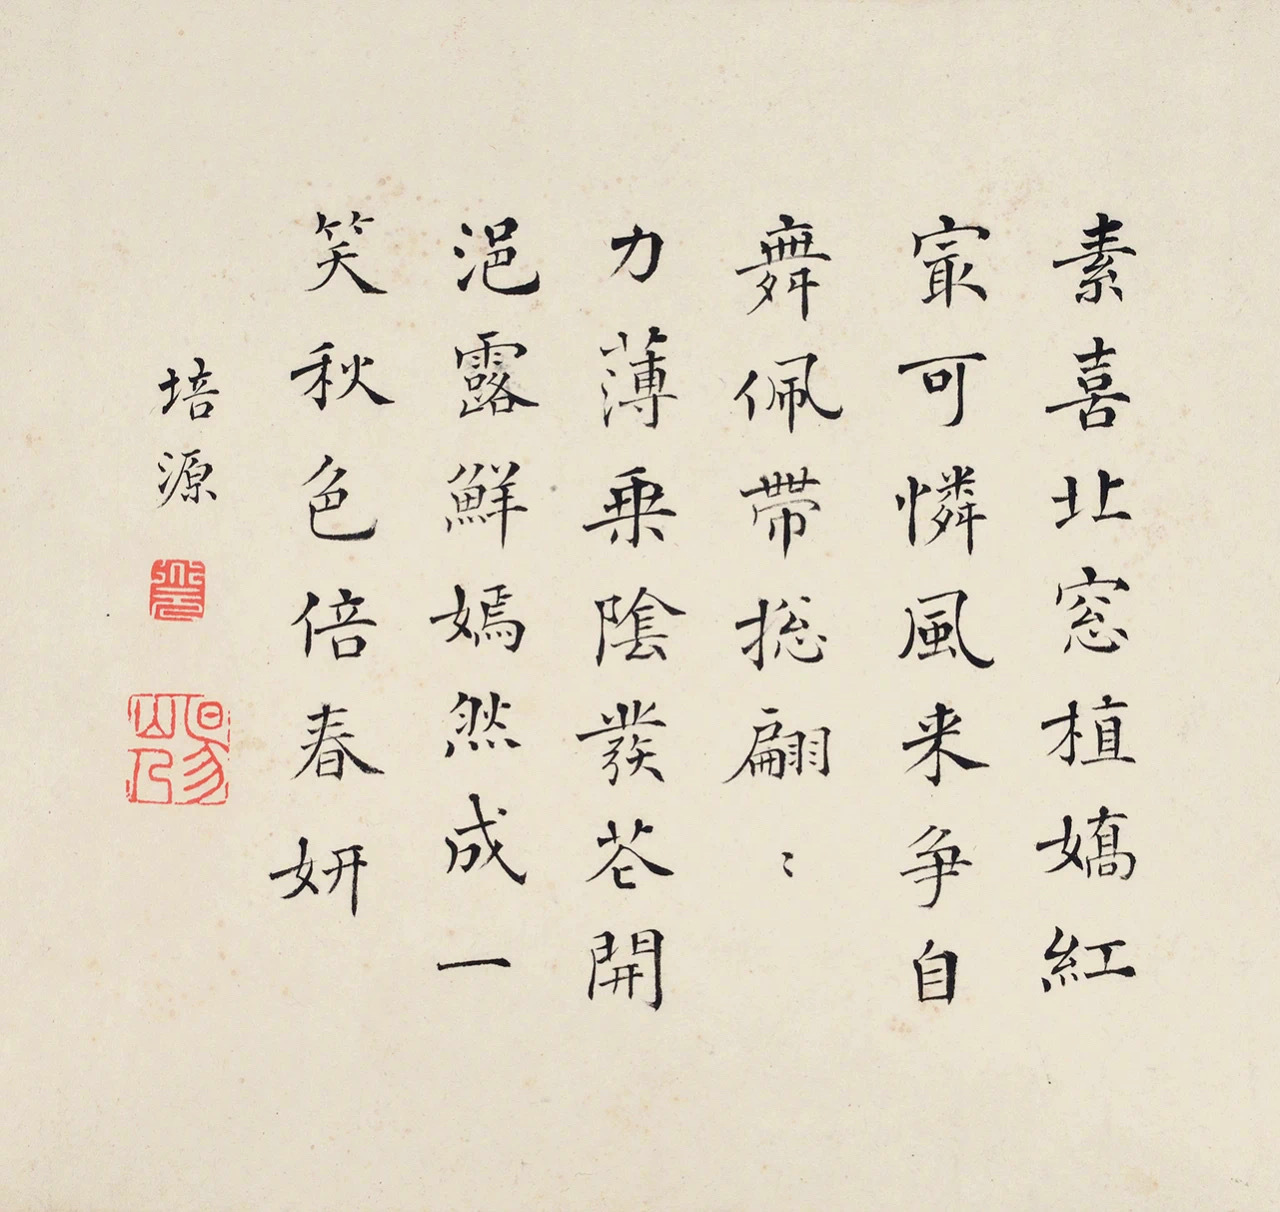 素喜北窓植嬌紅
㝡可憐風来争自
舞佩帶揔翩〻
力薄乗陰發花開
浥露鮮嫣然成一
笑秋色倍春妍
培源